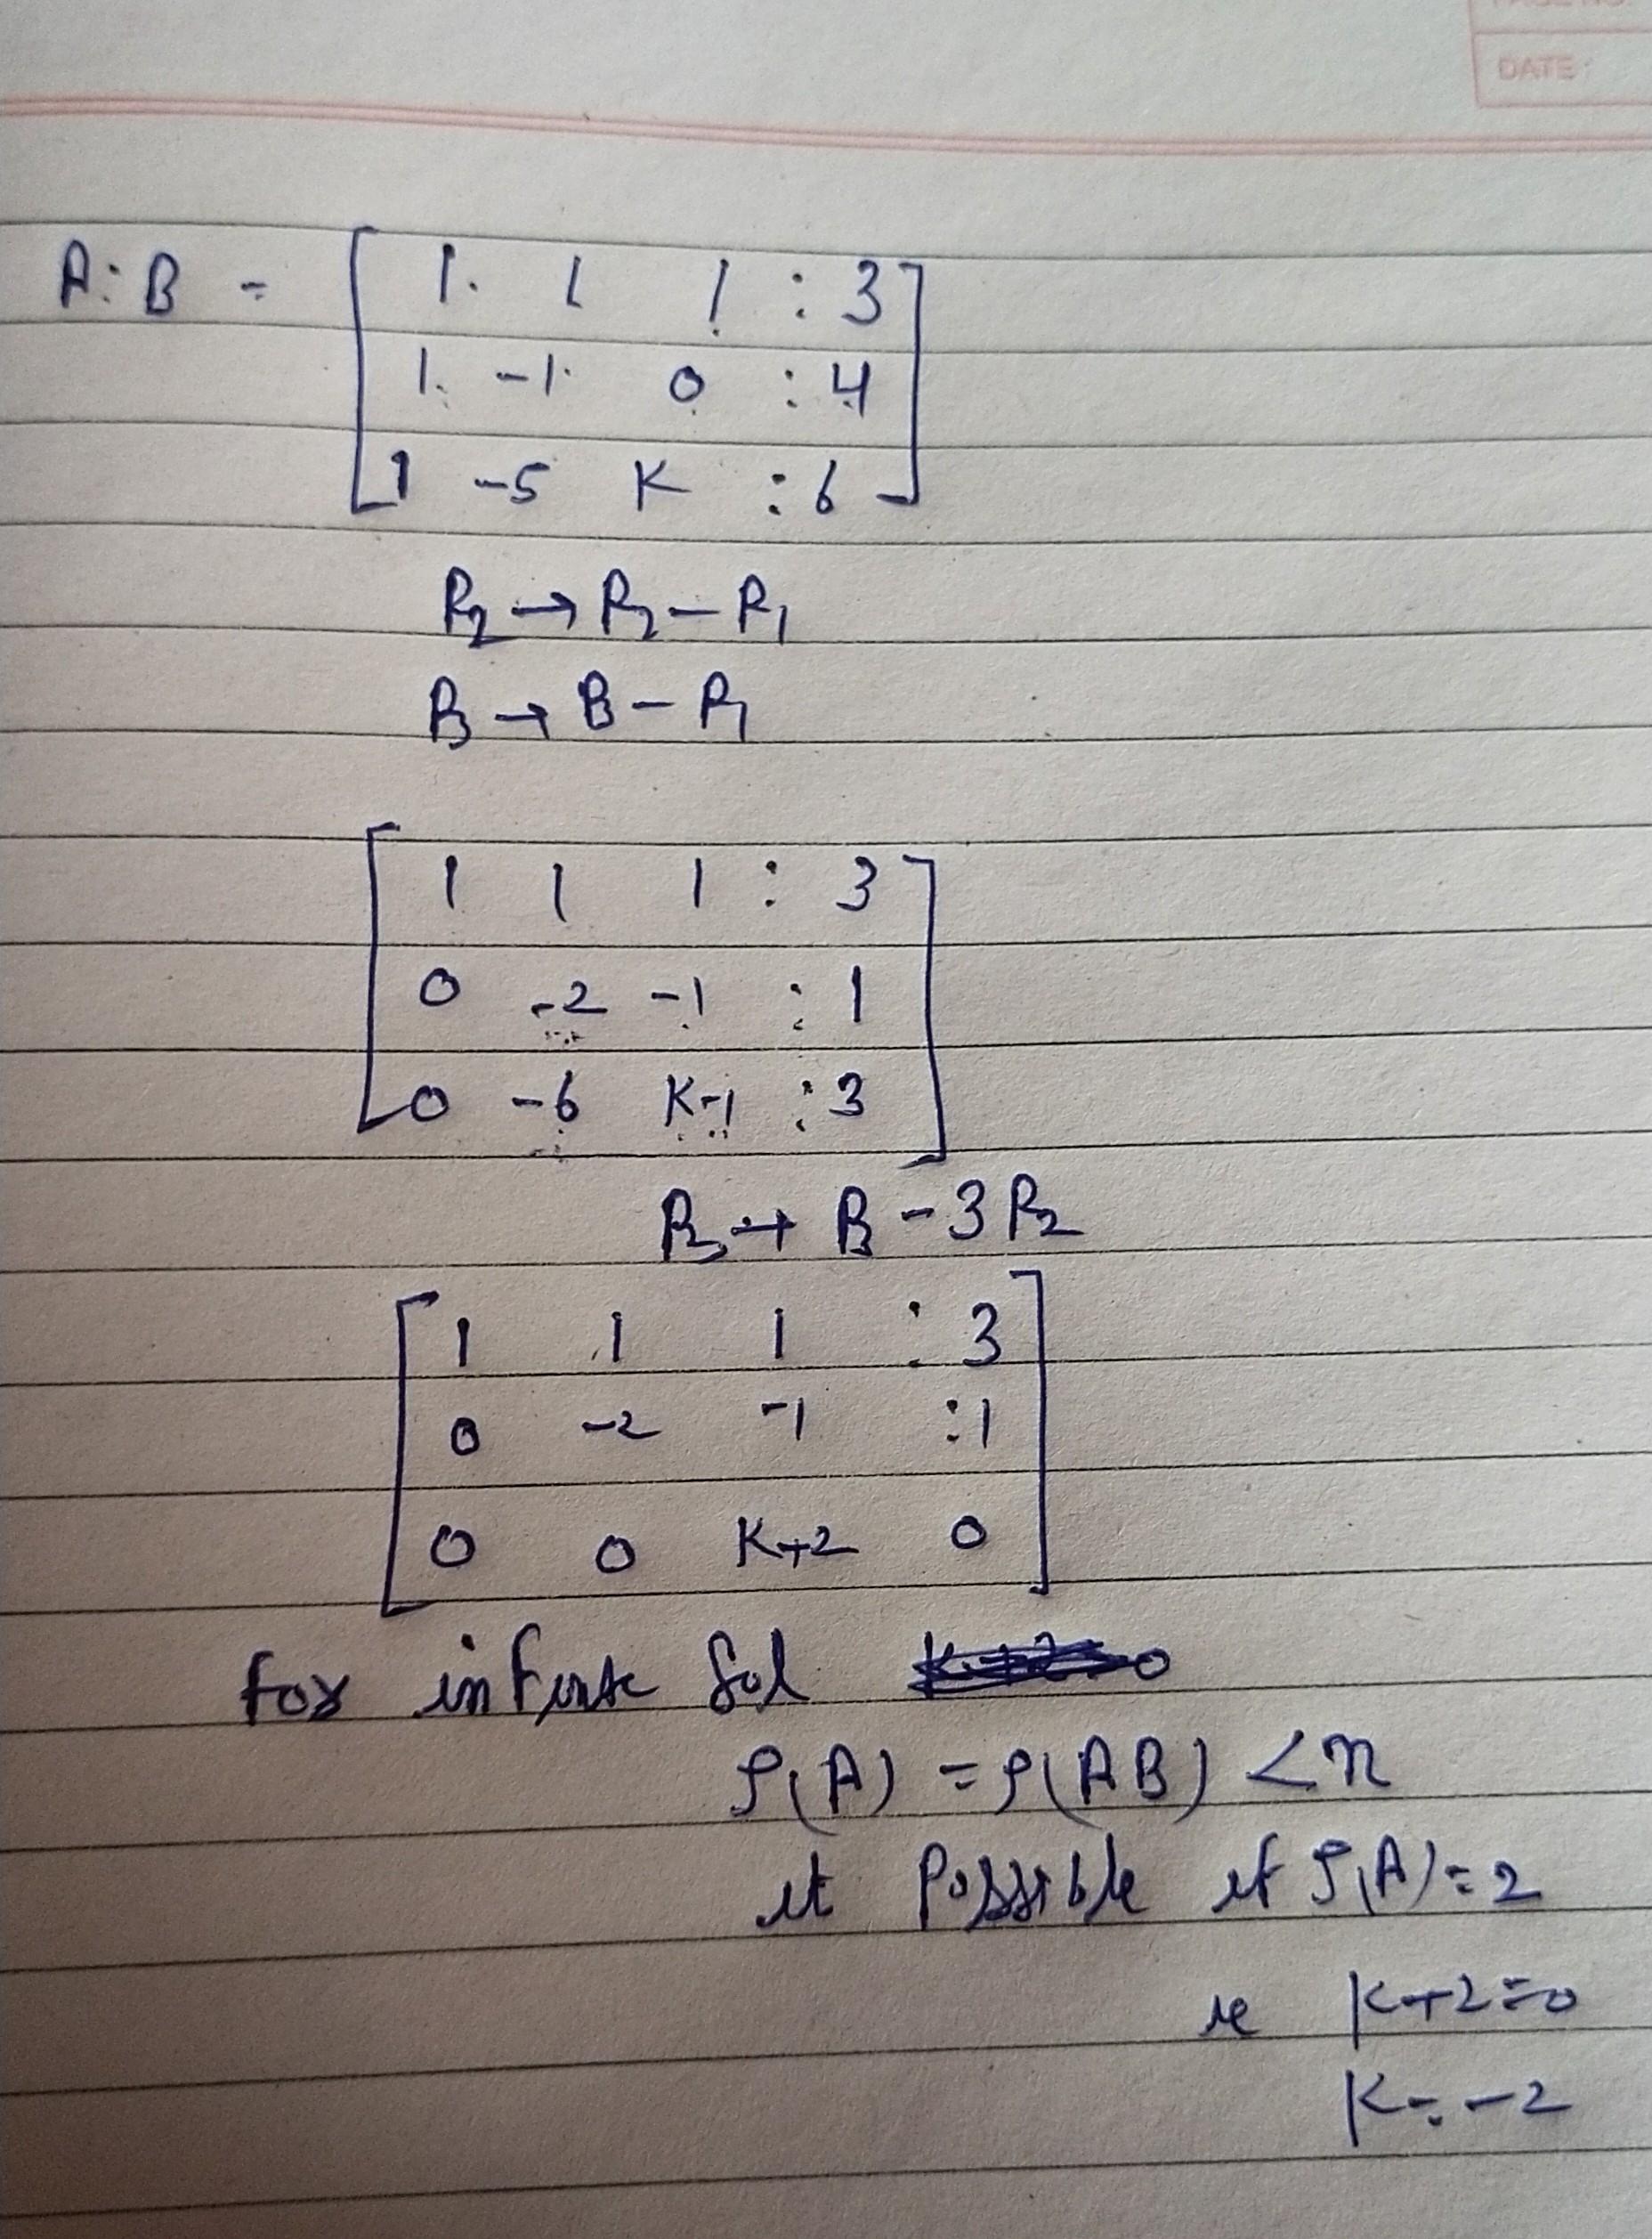 PAGE NO.
DATE:
A:B = [ 1 1 1 : 3 ]
[ 1 -1 0 : 4 ]
[ 1 -5 K : 6 ]
R2 → R2 - R1
R3 → R3 - R1
[ 1 1 1 : 3 ]
[ 0 -2 -1 : 1 ]
[ 0 -6 K-1 : 3 ]
R3 → R3 - 3R2
[ 1 1 1 : 3 ]
[ 0 -2 -1 : 1 ]
[ 0 0 K+2 0 ]
for infinite Sol
ρ(A) = ρ(AB) < n
it Possible if ρ(A) = 2
ie K+2=0
K = -2